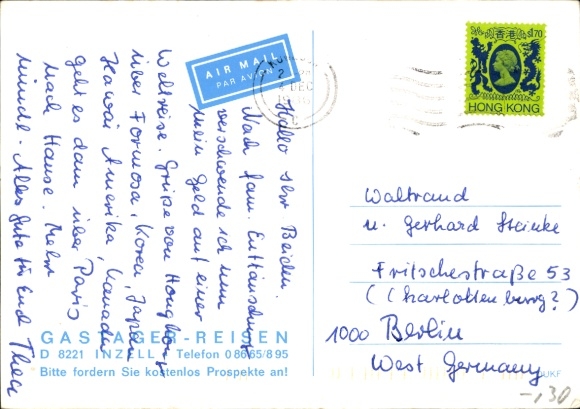 Hallo Ihr Beiden.
Nach fam. Enttäuschung
verschwende ich nun
mein Geld auf einer
Weltreise. Grüße von Hongkong
über Formosa, Korea, Japan
Hawai Amerika, Kanada
geht es dann über Paris
nach Hause. Mehr
mündl. Alles Gute für Euch Thea
AIR MAIL
PAR AVION
DEC
香港
$1.70
HONG KONG
Waltraud
u. Gerhard Steinke
Fritschestraße 53
(Charlottenburg?)
1000 Berlin
West Germany
GASTAGER-REISEN
D 8221 INZELL Telefon 08665/895
Bitte fordern Sie kostenlos Prospekte an!
UKF
-,30